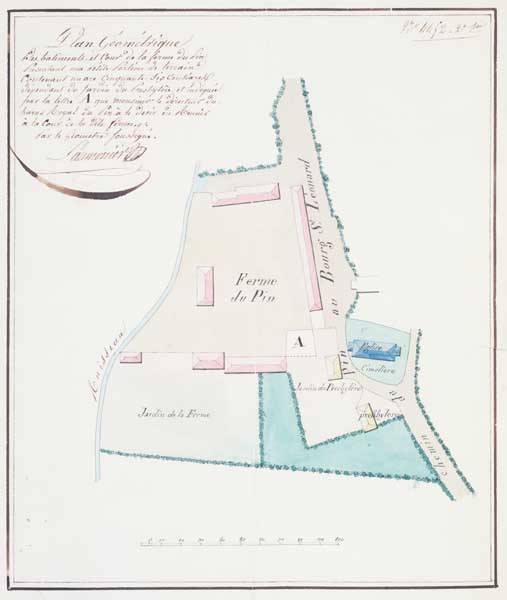 Plan Géométrique
Des batiments et Cour de la ferme du Pin
Présentant une petite Portion de terrain
Contenant un are Cinquante Six Centiares
dependant du Jardin du Presbytère et indiqué
par la lettre A que monsieur le directeur du
haras Royal du Pin a le désir de Réunir
à la Cour de la dite ferme
Par le géometre soussigné
Ferme
du Pin
au Bourg St Léonard
A
Eglise
Cimetière
Pin
du
chemin
Jardin du Presbytère
presbytère
Jardin de la Ferme
Ruisseau